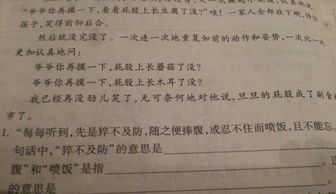 "爷爷你再摸一下,看看屁股上长豆腐了没?"哇!一家人全部放下碗,摔住
筷子,笑得前仰后合。
然后就没完没了。一次连一次地重复如前的动作和姿势,一次比一
更加认真地问:
爷爷你再摸一下,屁股上长蘑菇了没?
爷爷你再摸一下,屁股上长木耳了没?
我已经再没劲儿笑了,无可奈何地对他说,旦旦的屁股成了副食
市了。
1. "每每听到,先是猝不及防,随之便捧腹,或忍不住而喷饭,且不能忘
句话中,"猝不及防"的意思是
腹"和"喷饭"是指
的意思是